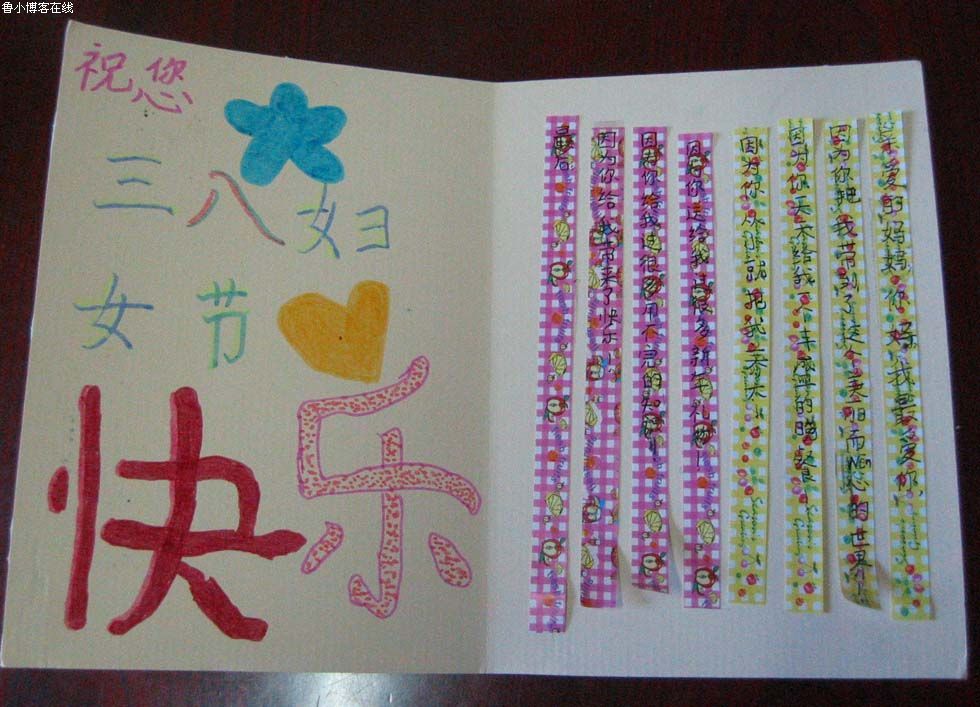 鲁小博客在线
祝您
三八妇
女节
快乐
亲爱的妈妈,你好,我最爱你,
因为你把我带到了这个美丽而Wen心的世界!
因为你天天给我丰盛的晚餐!
因为你从小就把我养大!
因为你送给我很多新年礼物!
因为你给我这很多用不完的知识!
因为你给我带来了快乐!
最后